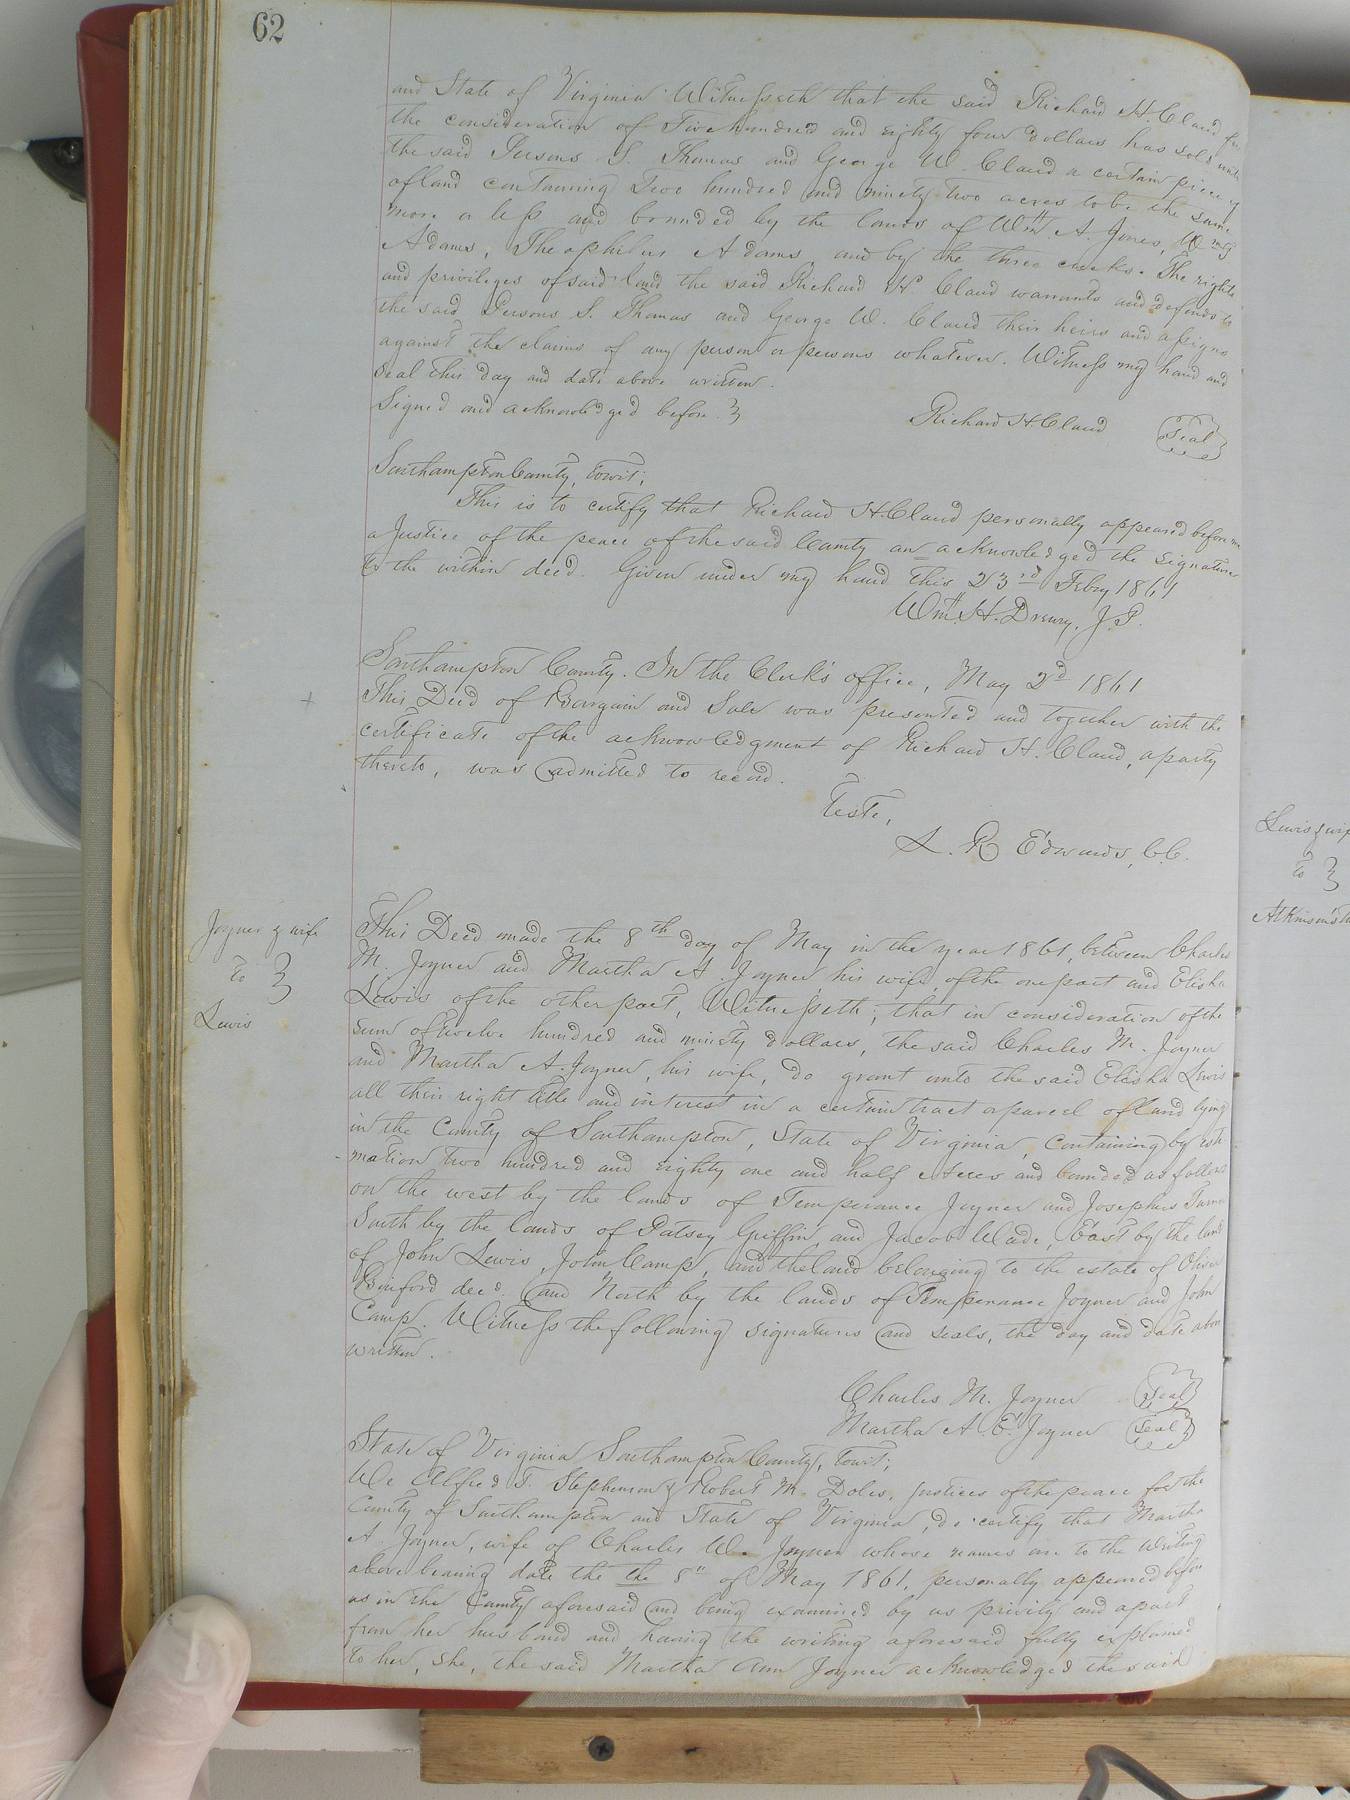 62
and State of Virginia Witnesseth that the said Richard H. Claud for
the consideration of Five hundred and eighty four dollars has sold unto
the said Persons S. Thomas and George W. Claud a certain piece of
of land containing Two hundred and ninety two acres to be the same
more or less and bounded by the lands of Wm. A. Jones, Wm.
Adams, Theophilus Adams, and by the three creeks. The rights
and privileges of said land the said Richard H. Claud warrants and defends to
the said Persons S. Thomas and George W. Claud their heirs and assigns
against the claims of any person or persons whatever. Witness my hand and
seal this day and date above written.
Signed and acknowledged before }
Richard H. Claud Seal
Southampton County, towit;
This is to certify that Richard H. Claud personally appeared before me
a Justice of the peace of the said County an acknowledged the signature
to the within deed. Given under my hand this 23rd Feby 1861
Wm. H. Drewry. J.P.
Southampton County. In the Clerk's office, May 2d 1861
This Deed of Bargain and Sale was presented and together with the
certificate of the acknowledgment of Richard H. Claud, a party
thereto, was admitted to record.
Teste,
L. R Edwards, C.C.
Joyner & wife
to }
Lewis
This Deed made the 8th day of May in the year 1861, between Charles
M. Joyner and Martha A. Joyner, his wife, of the one part and Elisha
Lewis of the other part, Witnesseth; that in consideration of the
sum of twelve hundred and ninety dollars, the said Charles M. Joyner
and Martha A. Joyner, his wife, do grant unto the said Elisha Lewis
all their right title and interest in a certain tract or parcel of land lying
in the County of Southampton, State of Virginia, containing by esti
mation two hundred and eighty one and half Acres and bounded as follows
on the west by the lands of Temperance Joyner and Josephus Turner
South by the lands of Patsey Griffin, and Jacob Wade, East by the land
of John Lewis, John Camp, and the land belonging to the estate of Oliver
Binford decd. and North by the lands of Temperance Joyner and John
Camp. Witness the following signatures and seals, the day and date above
written.
Charles M. Joyner Seal
Martha A. E. Joyner Seal
State of Virginia Southampton County, towit;
We Alfred T. Stephenson & Robert M. Doles, justices of the peace for the
County of Southampton and State of Virginia, do certify that Martha
A Joyner, wife of Charles W. Joyner whose names are to the writing
above bearing date the the 8" of May 1861, personally appeared before
us in the County aforesaid and being examined by us privily and apart
from her husband and having the writing aforesaid fully explained
to her, she, the said Martha Ann Joyner acknowledged the said
Lewis & wife
to }
Atkinson's